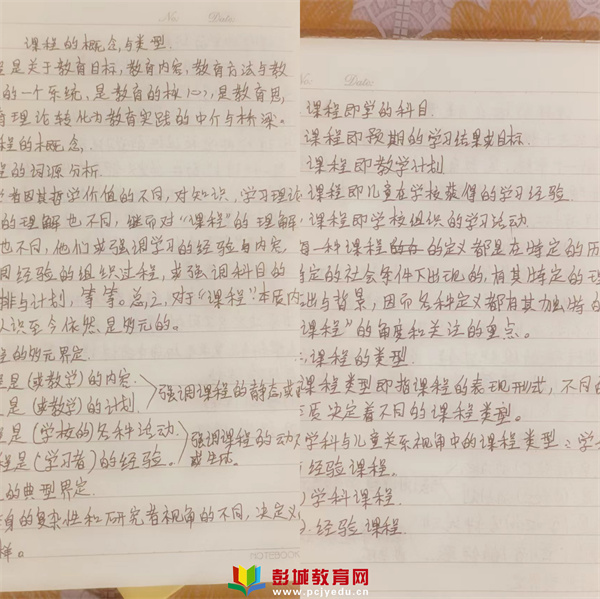 No. Date.
课程的概念与类型.
程是关于教育目标,教育内容,教育方法与教
的一个系统、是教育的核心,是教育思,
育理论转化为教育实践的中介与桥梁。
程的概念,
程的词源分析.
者因其哲学价值的不同,对知识,学习理论
的理解也不同,继而对“课程”的理解
也不同,他们或强调学习的经验与内容,
调经验的组织过程,或强调科目的
排与计划,等等。总之,对于“课程”本质内
认识至今依然是多元的。
的多元界定.
是(或教学)的内容.
是(或教学)的计划.
强调课程的静态或
是(学校的)各种活动.
程是(学习者)的经验。
强调课程的动
或生成.
的典型界定.
身的复杂性和研究者视角的不同,决定
样。
No: Date:
课程即学的科目.
课程即预期的学习结果或目标.
课程即教学计划
课程即儿童在学校获得的学习经验
课程即学校组织的学习活动.
每一种课程的定义都是在特定的历
定的社会条件下出现的,有其特定的理
出与背景,因而各种定义都有其独特的
课程”的角度和关注的重点。
课程的类型
课程类型即指课程的表现形式,不同的
质决定着不同的课程类型。
学科与儿童关系视角中的课程类型:学
经验课程。
)学科课程.
经验课程.
彭城教育网
www.pcjyedu.cn